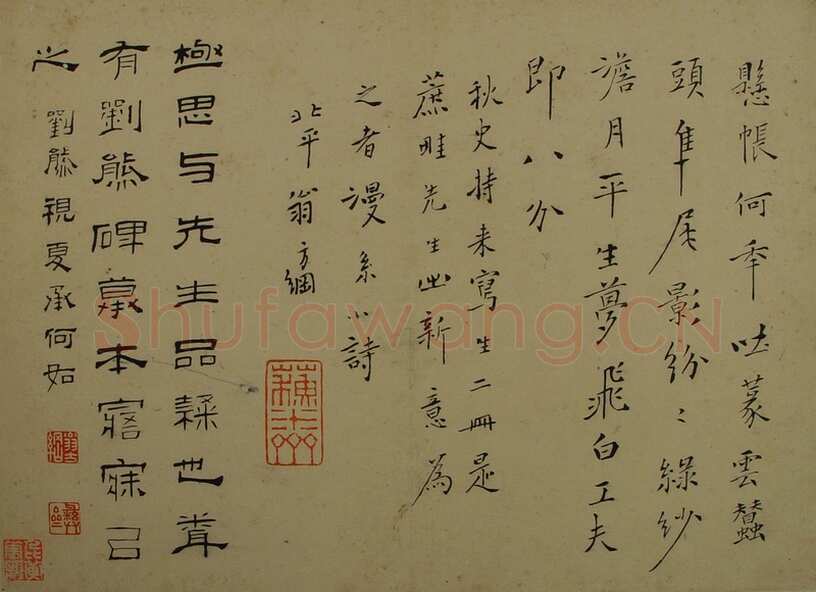 懸帳何秊吐篆雲蠶
頭隼尾影紛〻綠紗
澹月平生夢飛白工夫
即八分
秋史持來寫生二冊是
蔗畦先生出新意為
之者謾系小詩
北平翁方綱
極思与先生品隸也
有劉熊碑摹本寤寐
之劉熊視夏承何如
Shufawang.CN